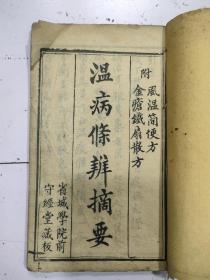 附
風温简便方
金瘡鐵扇散方
温病條辨摘要
省城學院前
守經堂藏板